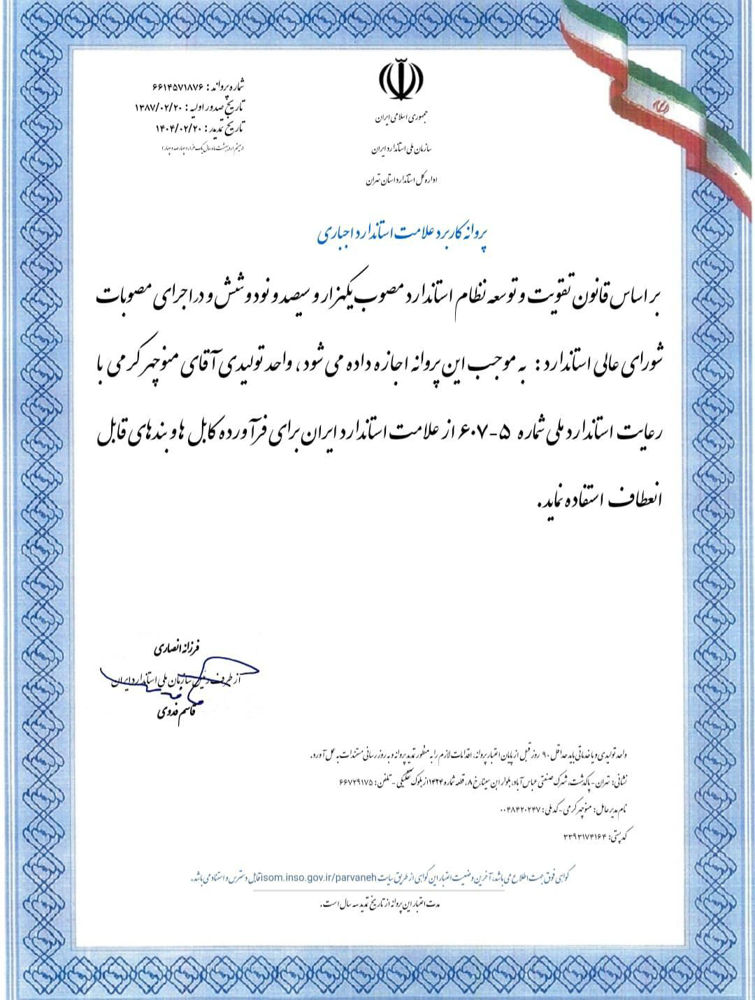 شماره پروانه : ۶۶۱۴۵۷۱۸۷۶
تاریخ صدور اولیه : ۱۳۸۷/۰۲/۲۰
تاریخ تمدید : ۱۴۰۴/۰۲/۲۰
جمهوری اسلامی ایران
سازمان ملی استاندارد ایران
اداره کل استاندارد استان تهران
پروانه کاربرد علامت استاندارد اجباری
بر اساس قانون تقویت و توسعه نظام استاندارد مصوب یکهزار و سیصد و نود و شش و در اجرای مصوبات
شورای عالی استاندارد : به موجب این پروانه اجازه داده می شود ، واحد تولیدی آقای منوچهر کرمی با
رعایت استاندارد ملی شماره ۵-۶۰۷ از علامت استاندارد ایران برای فرآورده کابل ها و بندهای قابل
انعطاف استفاده نماید.
فرزانه انصاری
از طرف رئیس سازمان ملی استاندارد ایران
قاسم فدوی
واحد تولیدی و یا خدماتی باید حداقل ۹۰ روز قبل از پایان اعتبار پروانه، اقدامات لازم را به منظور تمدید پروانه و به روز رسانی مستندات به عمل آورد.
نشانی: تهران - پاکدشت، شهرک صنعتی عباس آباد، بلوار ابن سینا، خ ۸، قطعه شماره ۱۴۲۴ از بلوک تفکیکی - تلفن: ۶۶۷۲۹۱۷۵
نام مدیرعامل: منوچهر کرمی - کد ملی: ۰۰۴۸۴۲۰۲۴۷
کد پستی: ۳۳۹۳۱۷۴۱۶۴
گواهی فوق جهت اطلاع می باشد، آخرین وضعیت اعتبار این گواهی از طریق سایت isom.inso.gov.ir/parvaneh قابل دسترس و استناد می باشد.
مدت اعتبار این پروانه از تاریخ تمدید سه سال است.